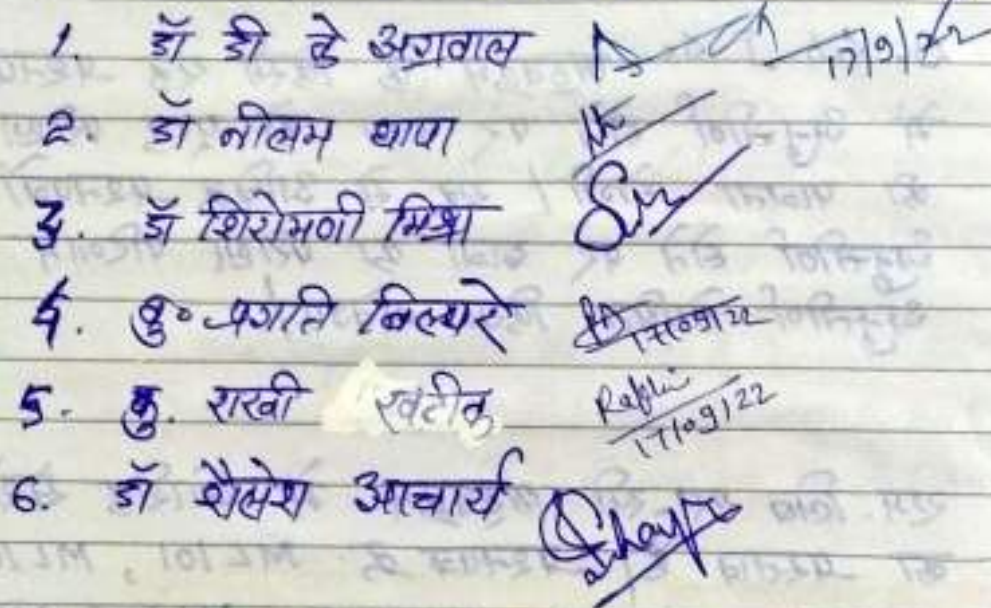 1. डॉ डी के अग्रवाल 17/9/22
2. डॉ नीलम थापा
3. डॉ शिरोमणी मिश्रा
4. कु० प्रगति बिल्थरे 17/09/22
5. कु. राखी खटीक Rakhi 17/09/22
6. डॉ शैलेश आचार्य